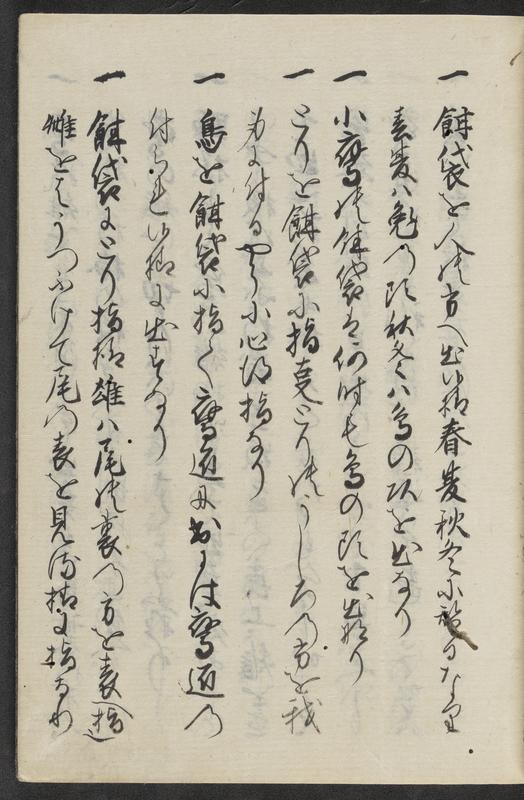 一 餌袋を人の方へ出候時春夏秋冬に替るなり
春夏ハ兎の頭秋冬ハ鳥の頭を出なり
一 小鷹の餌袋は何時も鳥の頭を出なり
一 とりを餌袋に指事とりのうしろの方を我
身に付るやうに心得指なり
一 鳥を餌袋に指て鷹匠に出には鷹匠の
付られ候様に出すなり
一 餌袋にとり指様雄ハ尾の裏の方を表へ指
雌をはうつふけて尾の表を見る様に指なり